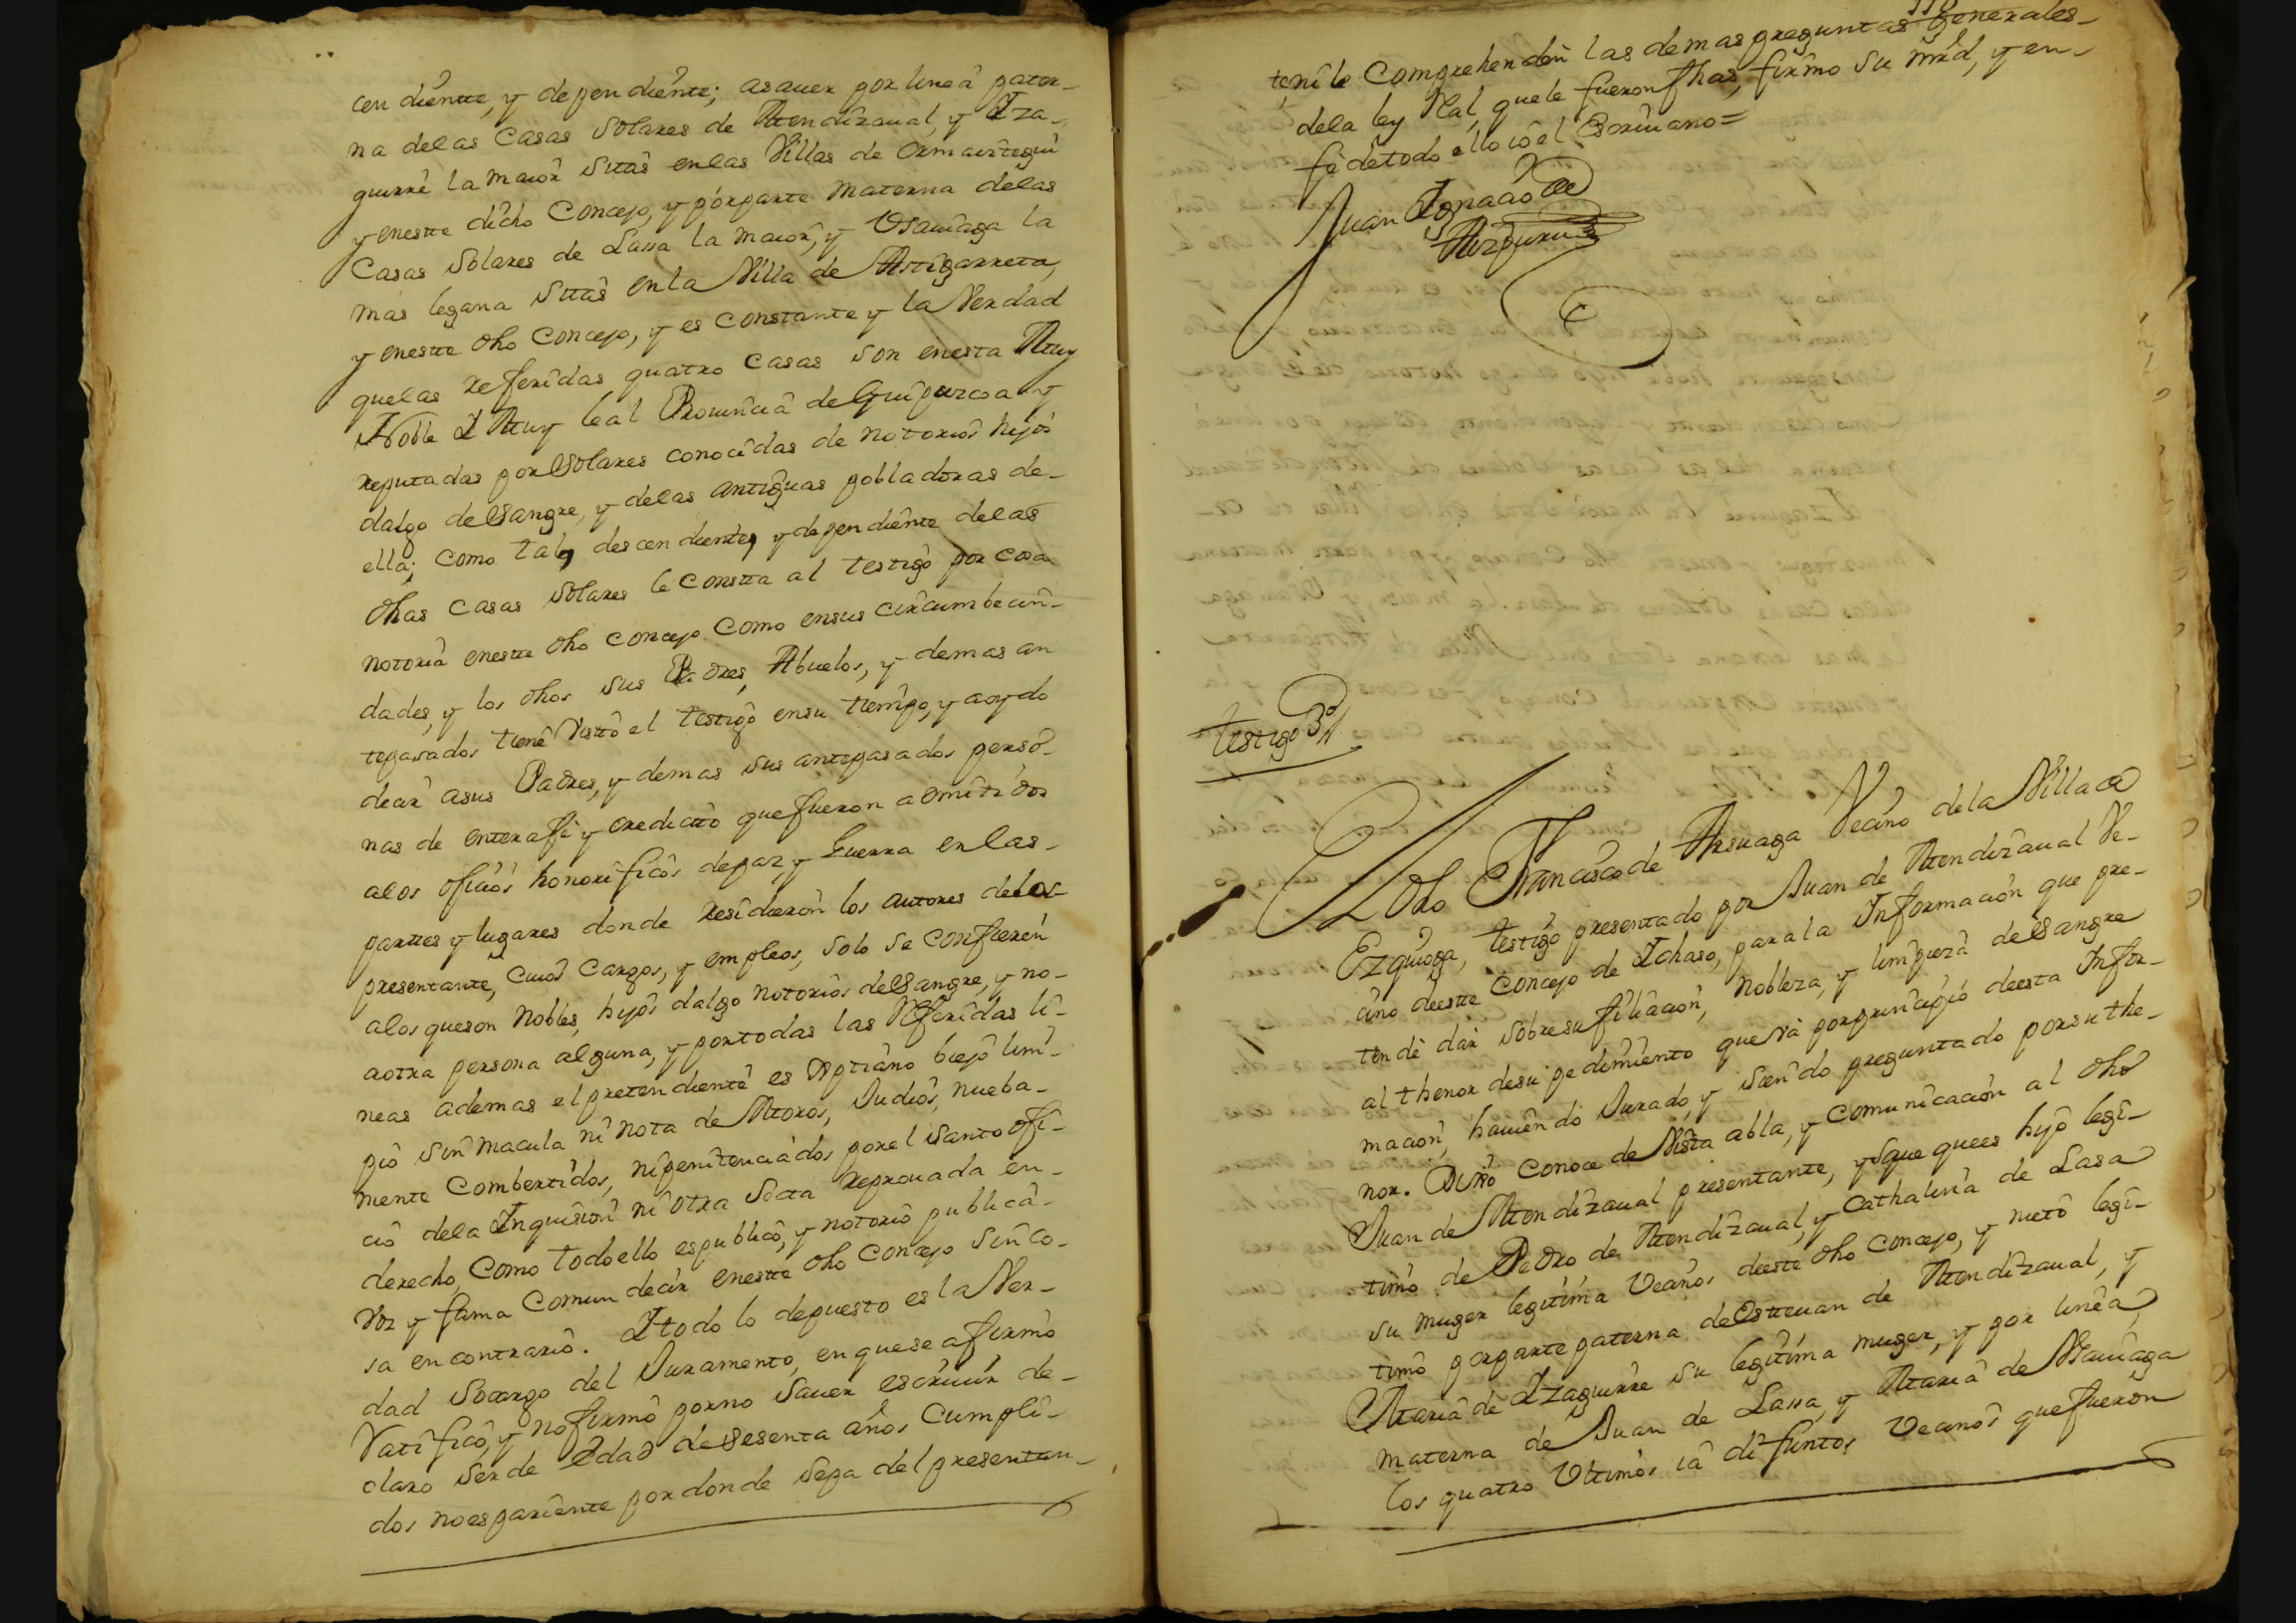 cendiente, y dependiente; asauer por linea pater-
na delas Casas Solares de Mendizaual, y Yza-
guirre la maior sitas enlas Villas de Ormaiztegui
y eneste dicho Concejo, y porparte materna delas
Casas Solares de Lassa la maior, y Usauiaga la
mas lejana sitas enla Villa de Astigarreta,
y eneste dho Concejo, y es constante y la Verdad
quelas referidas quatro Casas son enesta Muy
Noble Y Muy leal Prouincia de Guipuzcoa y
reputadas por Solares conocidas de notorios hijos
dalgo deSangre, y delas antiguas pobladoras de-
ella; como tal, descendiente, y dependiente delas
dhas casas Solares le consta al testigo por cosa
notoria eneste dho concejo como ensus circumbecin-
dades, y los dhos sus Padres, Abuelos, y demas an
tepasados tiene Visto el testigo ensu tiempo, y aoydo
decir asus Padres, y demas sus antepasados perso-
nas de enterafe y credicto quefueron admitidos
alos oficios honorificos depaz, y Guerra enlas-
partes y lugares donde residieron los autores delos-
presentante, cuios cargos, y empleos, solo se confieren
alos queson Nobles, hijos dalgo notorios deSangre, y no-
aotra persona alguna, y portodas las Referidas li-
neas ademas elpretendiente es Xptiano biejo lim-
pio sin macula ni nota de Moros, Judios, nueba-
mente Combertidos, nipenitenciados porel santo ofi-
cio dela Inquision ni otra Secta reprouada en-
derecho, Como todoello espublico, y notorio publica-
Voz y fama Comun decir eneste dho Concejo sinco-
sa encontrario. Ytodo lo depuesto es la Ver-
dad Socargo del Juramento, enquese afirmo
Ratifico, y nofirmo porno sauer escriuir de-
claro serde edad desesenta años Cumpli-
dos noespariente pordonde sepa delpresentan-
teni le Comprehenden las demas preguntas generales-
dela ley Ral, quele fueron fhas, firmo su mrd, y en-
fe detodo ello io el Escriuano=
Juan Ignacio de
Aizpuru
testigo 3º
El dho Francisco de Arsuaga Vecino dela Villa de
Ezquioga, testigo presentado por Juan de Mendizaual Ve-
cino deeste Concejo de Ichaso, parala Informacion que pre-
tende dar sobresu filiacion, nobleza, y limpieza deSangre
al thenor desu pedimiento queva porprincipio deesta Infor-
macion, hauiendo Jurado, y siendo preguntado porsu the-
nor. Dixo conoce de Vista abla, y comunicacion al dho
Juan de Mendizaual presentante, y que quees hijo legi-
timo de Pedro de Mendizaual, y Cathalina de Lasa
su muger legitima Vecinos deeste dho Concejo, y nieto legi-
timo porparte paterna deEsteuan de Mendizaual, y
Maria de Yzaguirre su legitima muger, y por linea
materna de Juan de Lassa, y Maria de Usauiaga
los quatro Ultimos ia difuntos Vecinos quefueron